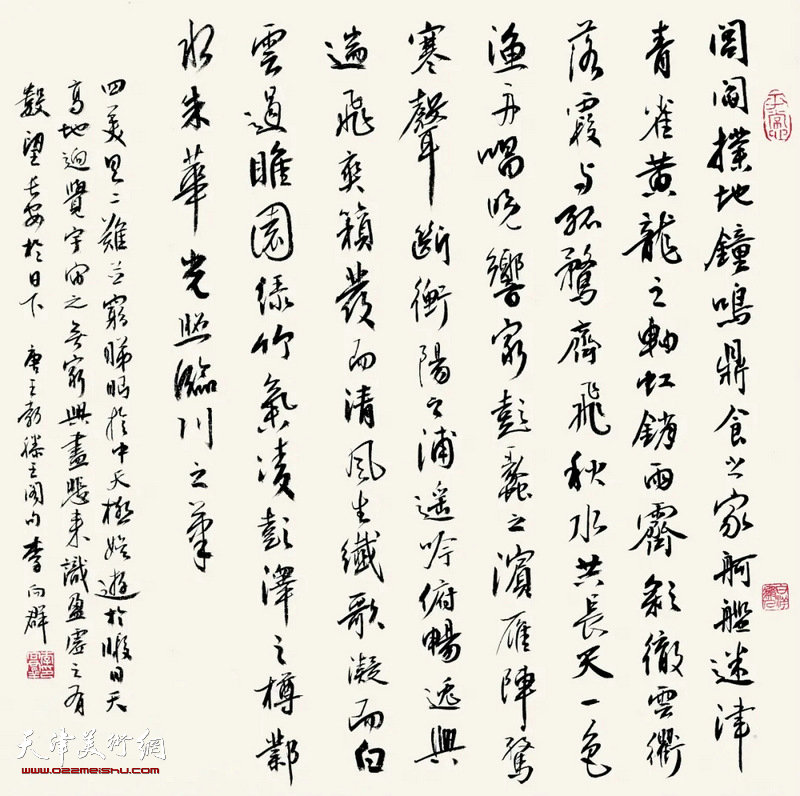 閭閻撲地鐘鳴鼎食之家舸艦迷津
青雀黄龍之軸虹銷雨霽彩徹雲衢
落霞与孤鶩齊飛秋水共長天一色
漁舟唱晚響窮彭蠡之濱雁陣驚
寒聲斷衡陽之浦遥吟俯暢逸興
遄飛爽籟發而清風生纖歌凝而白
雲遏睢園緑竹氣凌彭澤之樽鄴
水朱華光照臨川之筆
四美具二難並窮睇眄於中天極娛遊於暇日天
高地迥覺宇宙之無窮興盡悲來識盈虛之有
數望長安於日下 唐王勃滕王阁句 李向群
天津美術網
www.022meishu.com